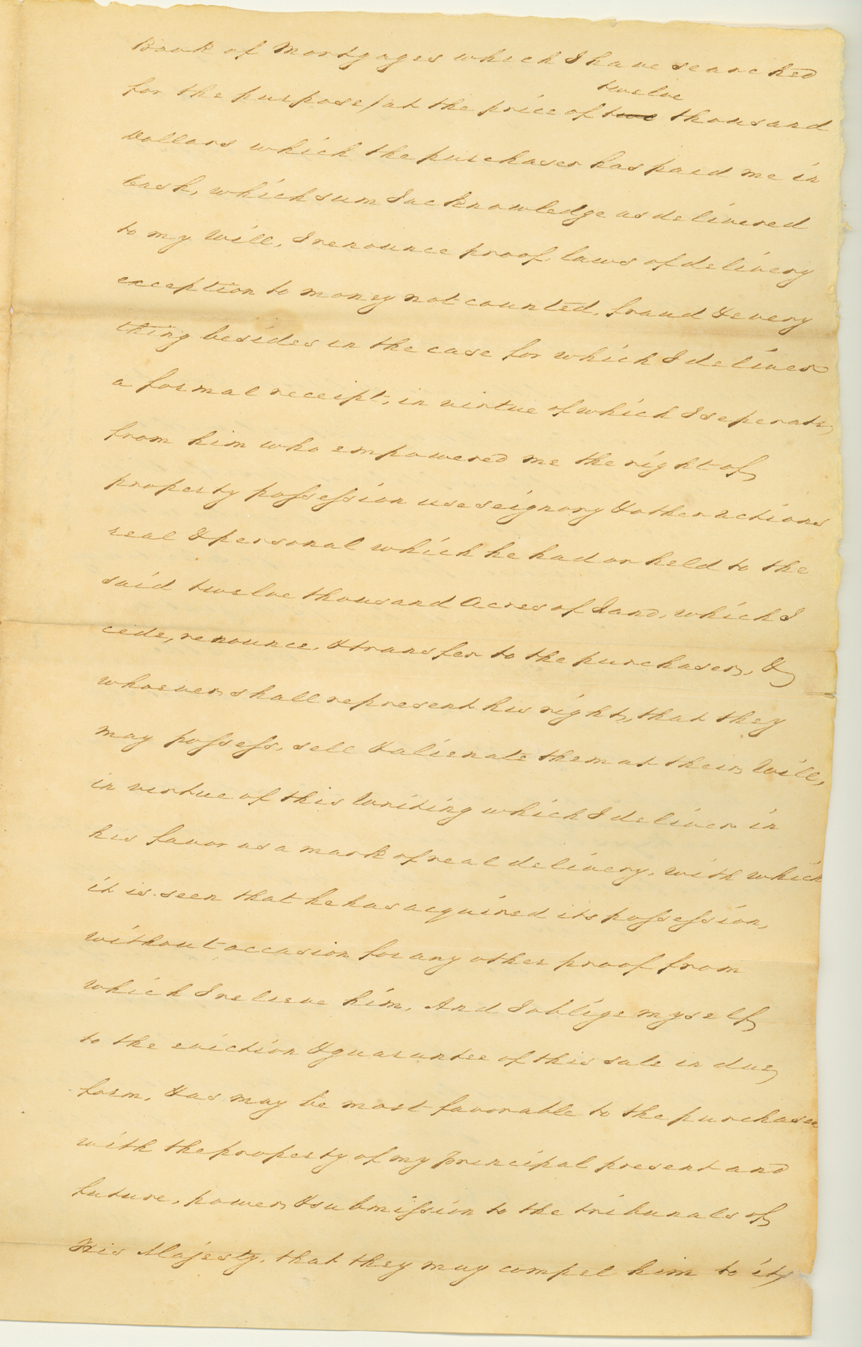 Book of Mortgages which I have searched
for the purpose, at the price of two twelve thousand
Dollars which the purchaser has paid me in
Cash, which sum I acknowledge as delivered
to my Will, I renounce proof, laws of delivery
exception to money not counted, fraud & every
thing besides in the case for which I deliver
a formal receipt, in virtue of which I seperate
from him who empowered me the right of
property possession use seignory & other actions
real & personal which he had or held to the
said twelve thousand Acres of Land, which I
cede, renounce, & transfer to the purchaser, &
whoever shall represent his right, that they
may possess, sell & alienate them at their Will,
in virtue of this Writing which I deliver in
his favor as a mark of real delivery, with which
it is seen that he has acquired its possession,
without occasion for any other proof from
which I relieve him, And I oblige myself
to the eviction & guarantee of this sale in due
form, & as may be most favorable to the purchaser
with the property of my principal present and
future, power & submission to the tribunals of
His Majesty, that they may compel him to it,